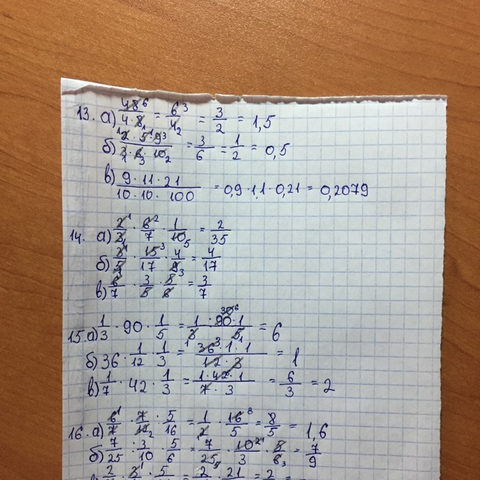 13. а) 48/(4·8) = 6/4 = 3/2 = 1,5
б) (2·5·9)/(3·6·10) = 3/6 = 1/2 = 0,5
в) (9·11·21)/(10·10·100) = 0,9·1,1·0,21 = 0,2079
14. а) 2/3 · 6/7 · 1/10 = 2/35
б) · 15/17 · 4/9 = 4/17
в) 6/7 · 3/5 · 5/6 = 3/7
15. а) 1/3 · 90 · 1/5 = (1·90·1)/(3·5) = 6
б) 36 · 1/12 · 1/3 = (36·1·1)/(12·3) = 1
в) 1/7 · 42 · 1/3 = (1·42·1)/(7·3) = 6/3 = 2
16. а) · 5/16 = 1/2 · 16/5 = 8/5 = 1,6
б) 7/25 : 3/10 · 5/6 = 7/25 · 10/3 · 5/6 = 7/9